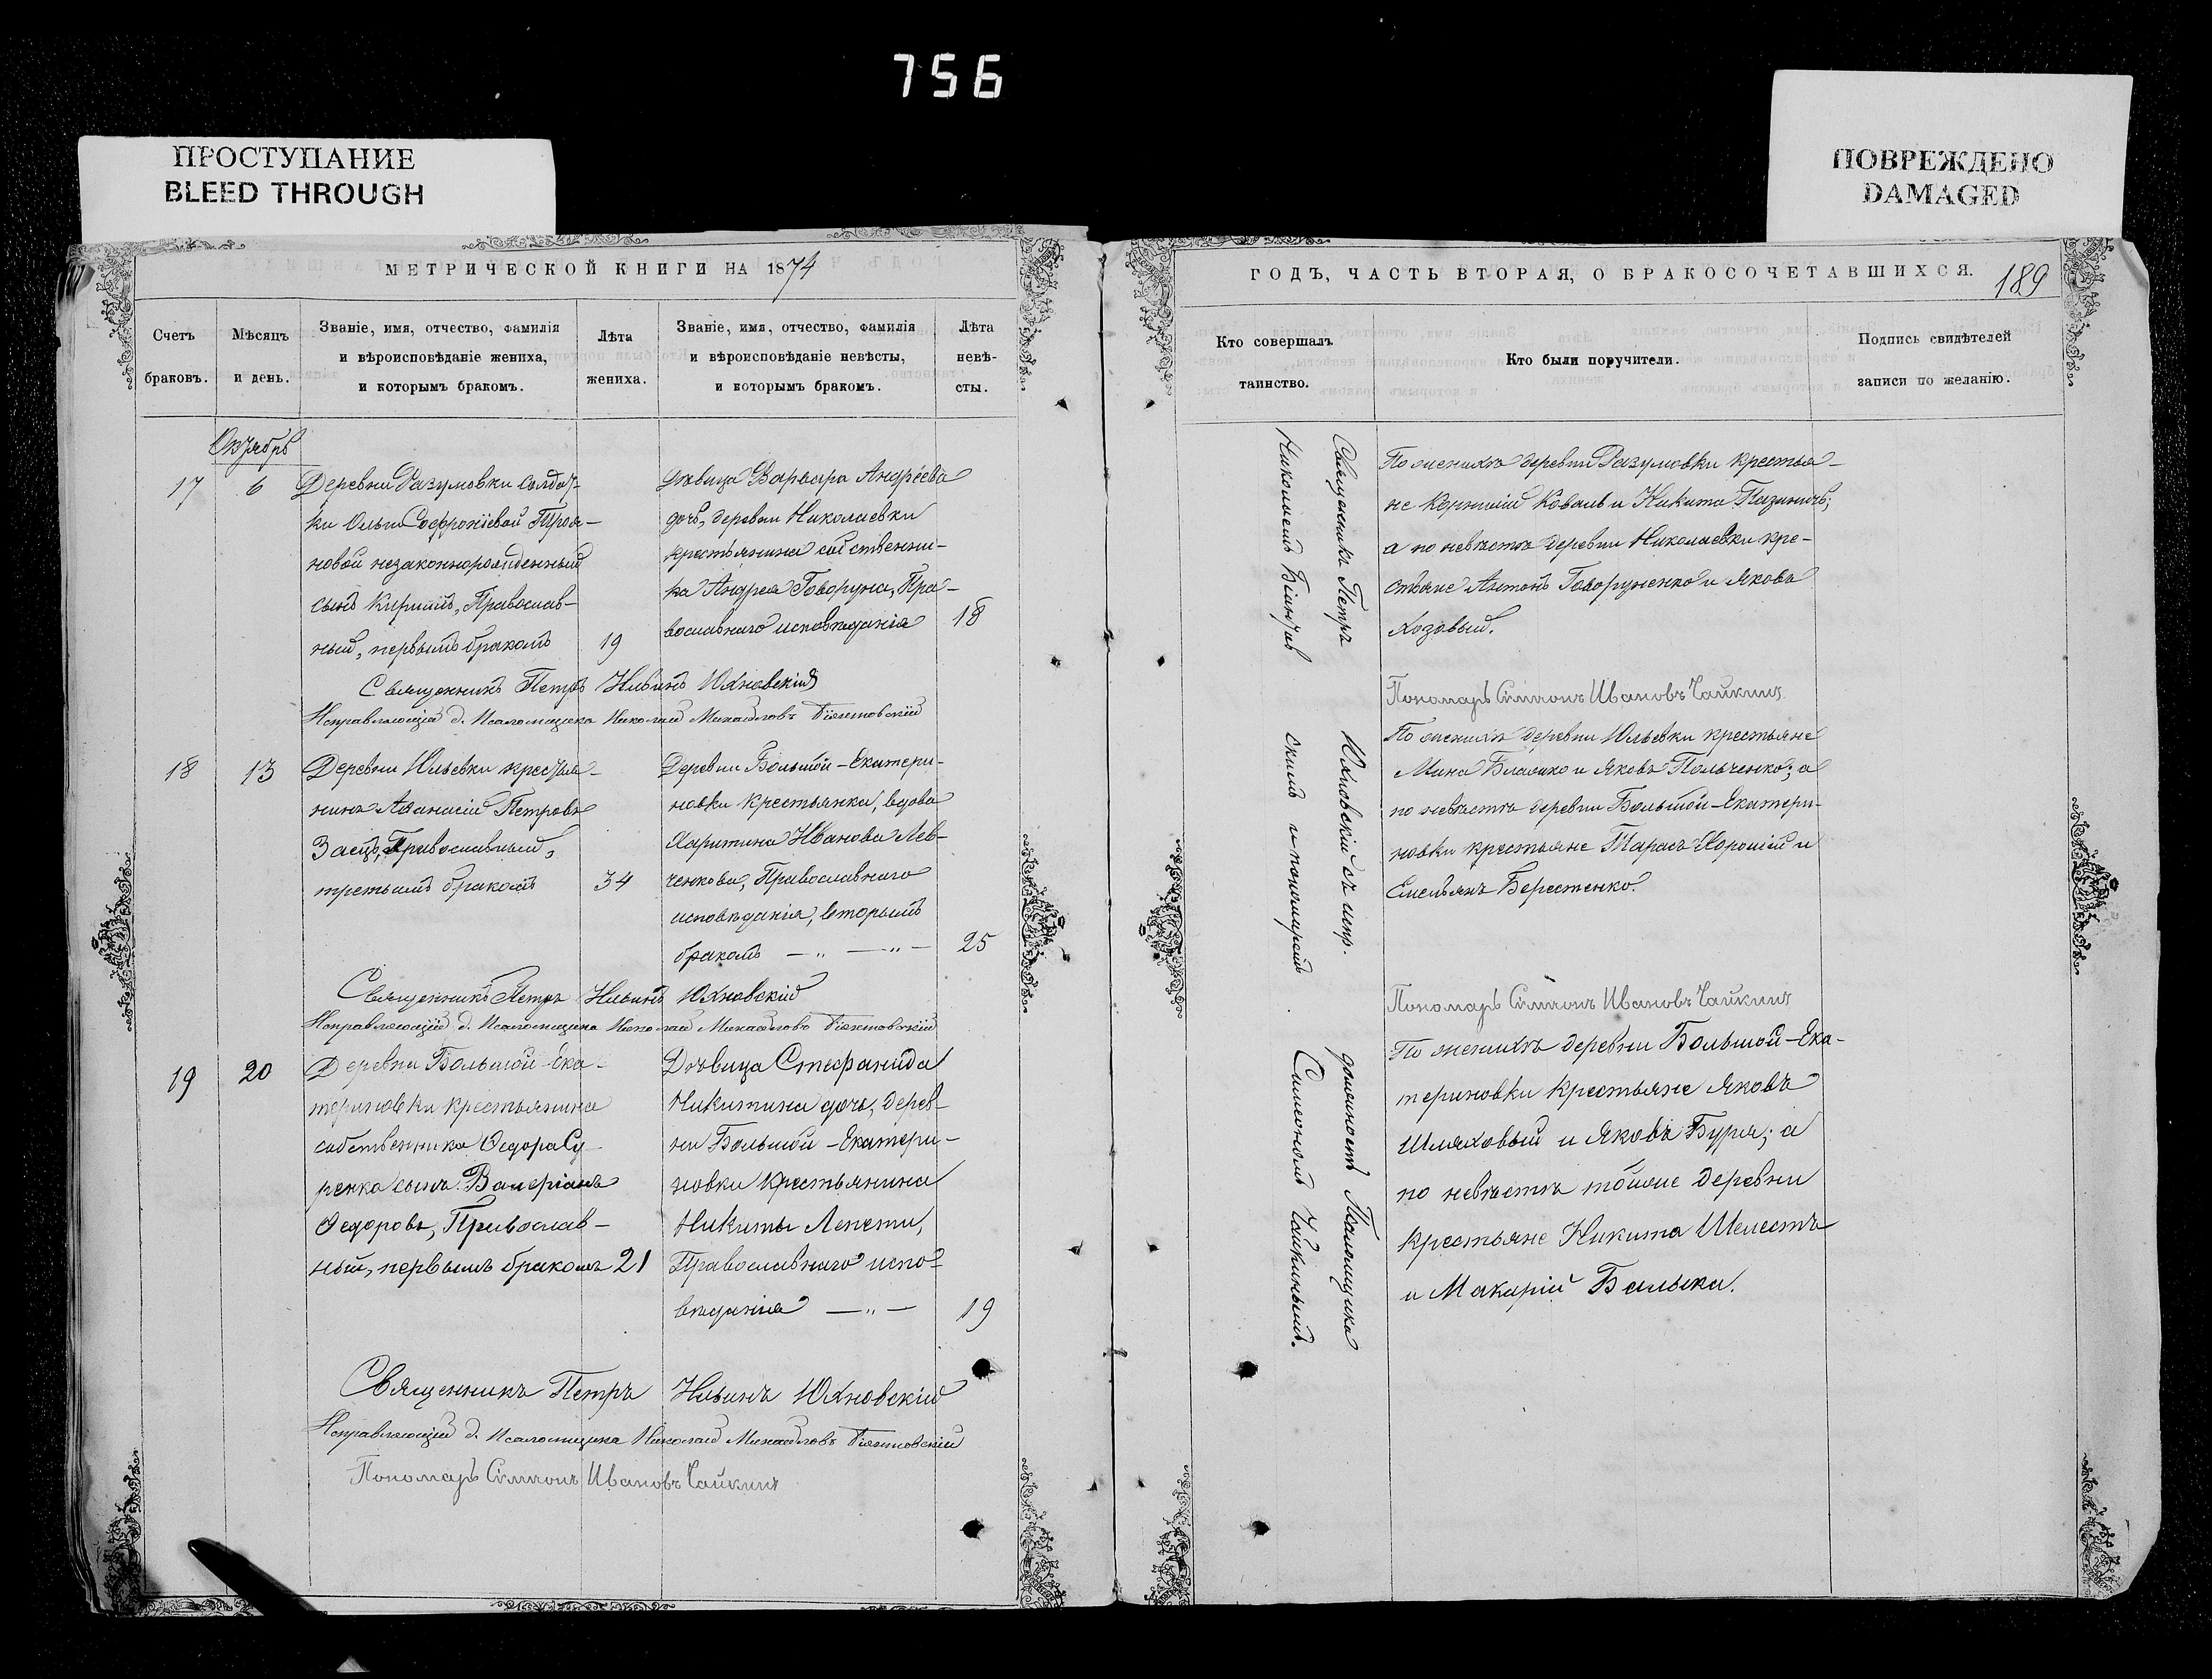 756
ПРОСТУПАНИЕ
BLEED THROUGH
ПОВРЕЖДЕНО
DAMAGED
МЕТРИЧЕСКОЙ КНИГИ НА 1874
Счетъ
браковъ.
Мѣсяцъ
и день.
Званіе, имя, отчество, фамилія
и вѣроисповѣданіе жениха,
и которымъ бракомъ.
Лѣта
жениха.
Званіе, имя, отчество, фамилія
и вѣроисповѣданіе невѣсты,
и которымъ бракомъ.
Лѣта
невѣ-
сты.
Октябрь
17
6
Деревни Разумовки солдат-
ки Ольги Софроніевой Троя-
новой незаконнорожденный
сынъ Кирилъ, Православ-
ный, первымъ бракомъ
19
Дѣвица Варвара Андреева
дочь, деревни Николаевки
крестьянина собственни-
ка Андрея Говоруна, Пра-
вославнаго исповѣданія
18
Священникъ Петръ Ильинъ Юхновскій
Исправляющій д. Псаломщика Николай Михайловъ
18
13
Деревни Юльевки крестья-
нинъ Афанасій Петровъ
Заецъ, Православный,
третьимъ бракомъ
34
Деревни Большой-Екатери-
новки крестьянка, вдова
Харитина Иванова Лев-
ченкова, Православнаго
исповѣданія, вторымъ
бракомъ — „ — „ —
25
Священникъ Петръ Ильинъ Юхновскій
Исправляющій д. Псаломщика Николай Михайловъ
19
20
Деревни Большой-Ека-
териновки крестьянина
собственника Федора Су
ренка сынъ Валеріанъ
Федоровъ, Православ-
ный, первымъ бракомъ
21
Дѣвица Стефанида
Никитина дочь, дерев-
ни Большой-Екатери-
новки крестьянина
Никиты Лепети,
Православнаго испо-
вѣданія — „ —
19
Священникъ Петръ Ильинъ Юхновскій
Исправляющій д. Псаломщика Николай Михайловъ
Пономарь Симеонъ Ивановъ Чайкинъ
ГОДЪ, ЧАСТЬ ВТОРАЯ, О БРАКОСОЧЕТАВШИХСЯ.
189
Кто совершалъ
таинство.
Кто были поручители.
Подпись свидѣтелей
записи по желанію.
Священникъ Петръ Юхновскій съ испр. должность Псаломщика
Николаемъ и пономаремъ Симеономъ Чайкинымъ.
По женихѣ деревни Разумовки крестья-
не Коваль и Никита
а по невѣстѣ деревни Николаевки кре-
стьяне Антонъ Говоруненко и Яковъ
Хозовый.
Пономарь Симеонъ Ивановъ Чайкинъ
По женихѣ деревни Юльевки крестьяне
Мина и Яковъ Польченко; а
по невѣстѣ деревни Большой-Екатери-
новки крестьяне Тарасъ Хорошій и
Емельянъ Берестенко.
Пономарь Симеонъ Ивановъ Чайкинъ
По женихѣ деревни Большой-Ека-
териновки крестьяне Яковъ
Шляховый и Яковъ Буря; а
по невѣстѣ тойже деревни
крестьяне Никита Шелестъ
и Макарій